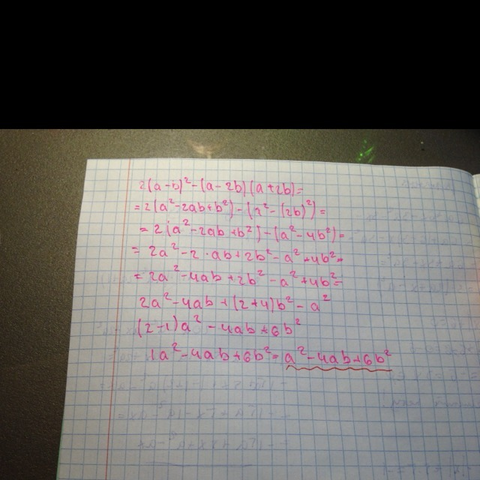 2(a-b)²-(a-2b)(a+2b)=
=2(a²-2ab+b²)-(a²-(2b)²)=
=2(a²-2ab+b²)-(a²-4b²)=
=2a²-2·ab+2b²-a²+4b²=
=2a²-4ab+2b²-a²+4b²=
2a²-4ab+(2+4)b²-a²
(2-1)a²-4ab+6b²
1a²-4ab+6b²=a²-4ab+6b²